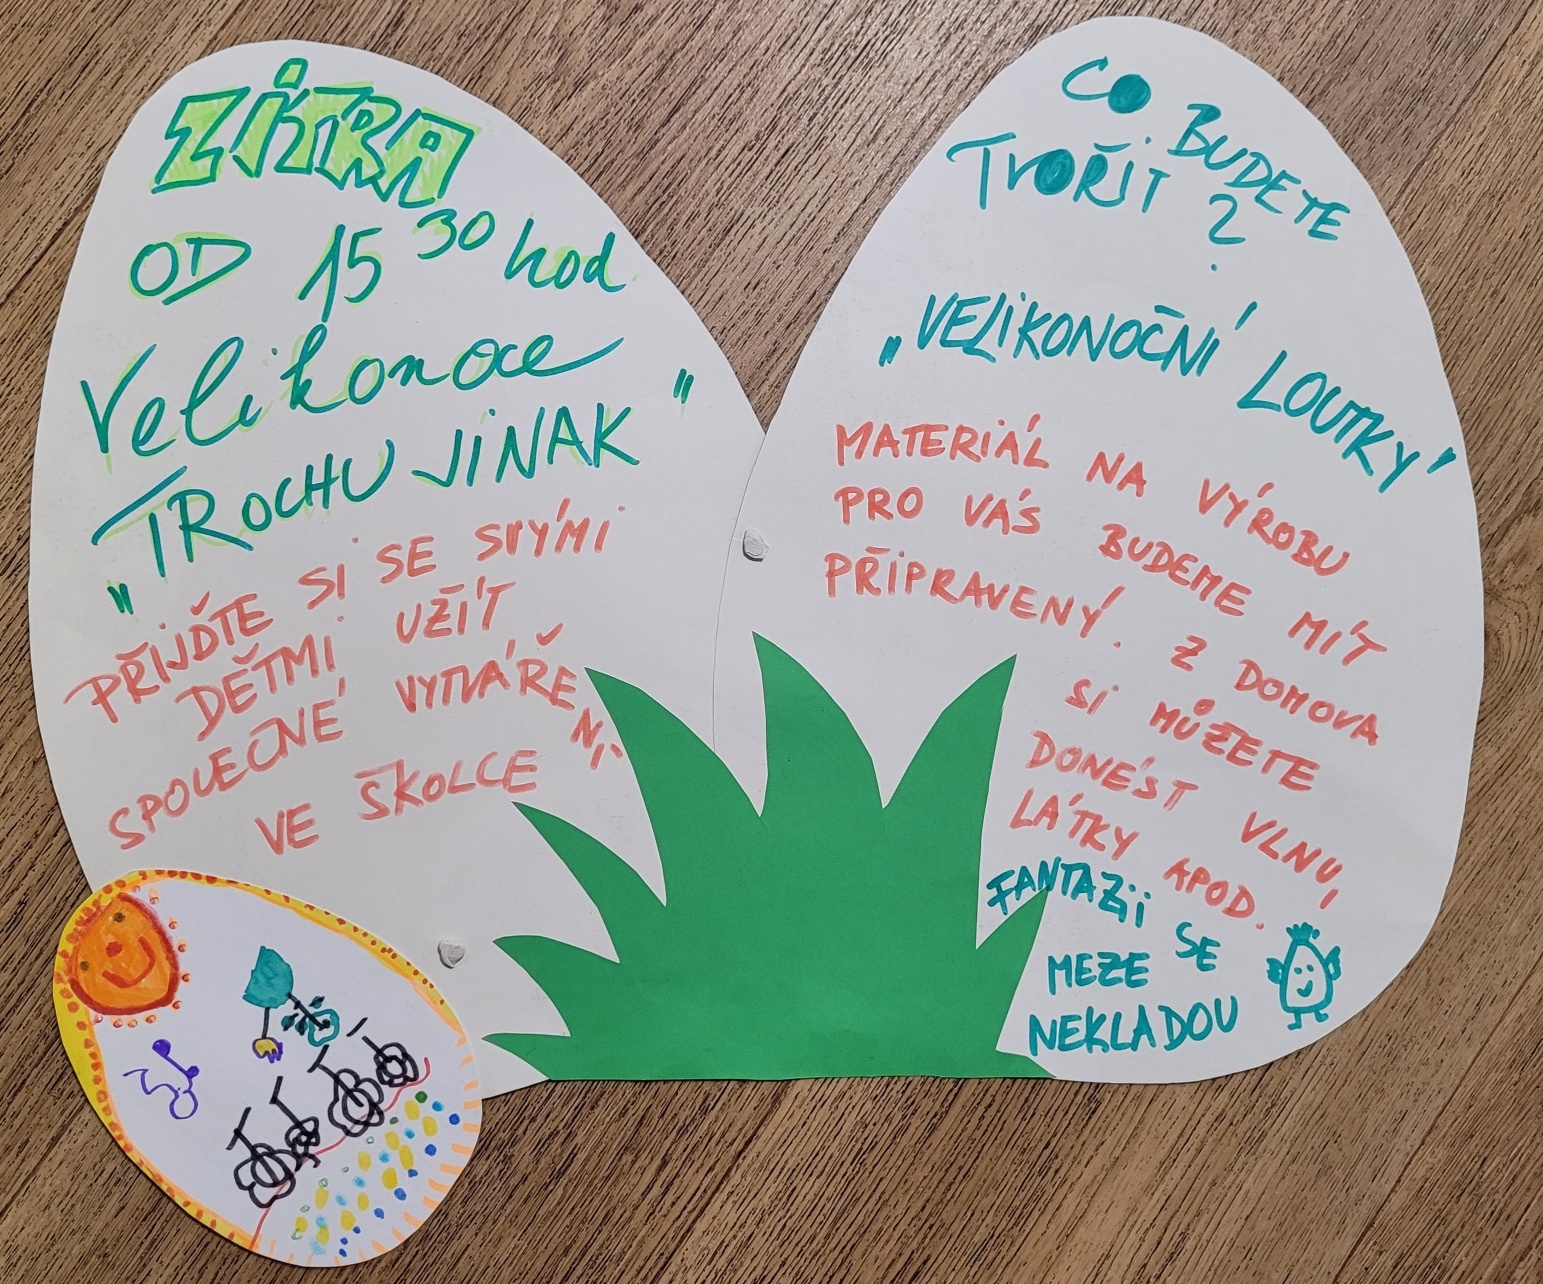 ZÍTRA
OD 15 30 hod
Velikonoce
"TROCHU JINAK"
PŘIJĎTE SI SE SVÝMI
DĚTMI UŽÍT
SPOLEČNÉ VYTVÁŘE
NÍ
VE ŠKOLCE
CO BUDETE
TVOŘIT ?
„VELIKONOČNÍ LOUTKY"
MATERIÁL NA VÝROBU
PRO VÁS BUDEME MÍT
PŘIPRAVENÝ. Z DOMOVA
SI MŮŽETE
DONÉST VLNU,
LÁTKY APOD.
FANTAZII SE
MEZE
NEKLADOU